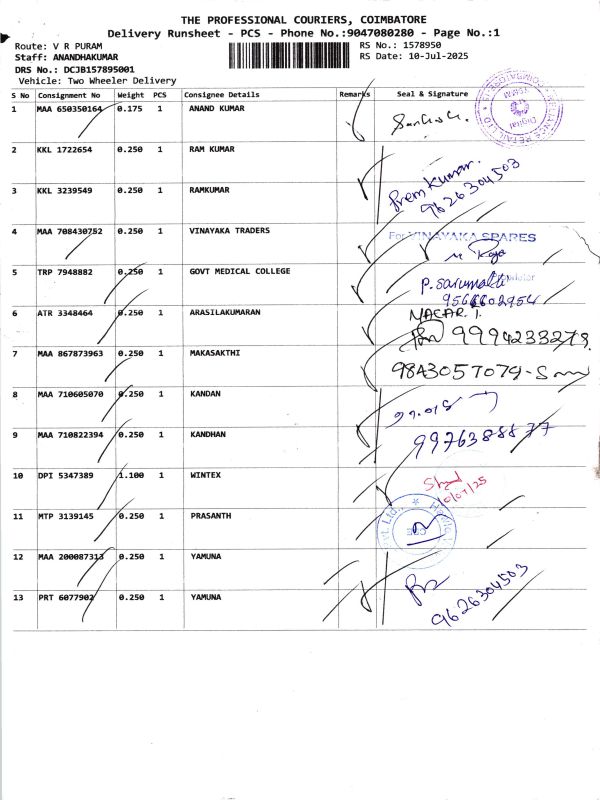 THE PROFESSIONAL COURIERS, COIMBATORE
Delivery Runsheet - PCS - Phone No.:9047080280 - Page No.:1
Route: V R PURAM
RS No.: 1578950
Staff: ANANDHAKUMAR
RS Date: 10-Jul-2025
DRS No.: DCJB157895001
Vehicle: Two Wheeler Delivery
S No Consignment No Weight PCS Consignee Details Remarks Seal & Signature
1 MAA 650350164 0.175 1 ANAND KUMAR
2 KKL 1722654 0.250 1 RAM KUMAR
3 KKL 3239549 0.250 1 RAMKUMAR Prem Kumar.
9626304503
4 MAA 708430752 0.250 1 VINAYAKA TRADERS For VINAYAKA SPARES
5 TRP 7948882 0.250 1 GOVT MEDICAL COLLEGE P. Sarumathi
9566602954
6 ATR 3348464 0.250 1 ARASILAKUMARAN
9994233278
7 MAA 867873963 0.250 1 MAKASAKTHI 9843057079
8 MAA 710605070 0.250 1 KANDAN
9 MAA 710822394 0.250 1 KANDHAN 9976388877
10 DPI 5347389 1.100 1 WINTEX
10/07/25
11 MTP 3139145 0.250 1 PRASANTH
12 MAA 200087313 0.250 1 YAMUNA
13 PRT 6077902 0.250 1 YAMUNA 9626304503